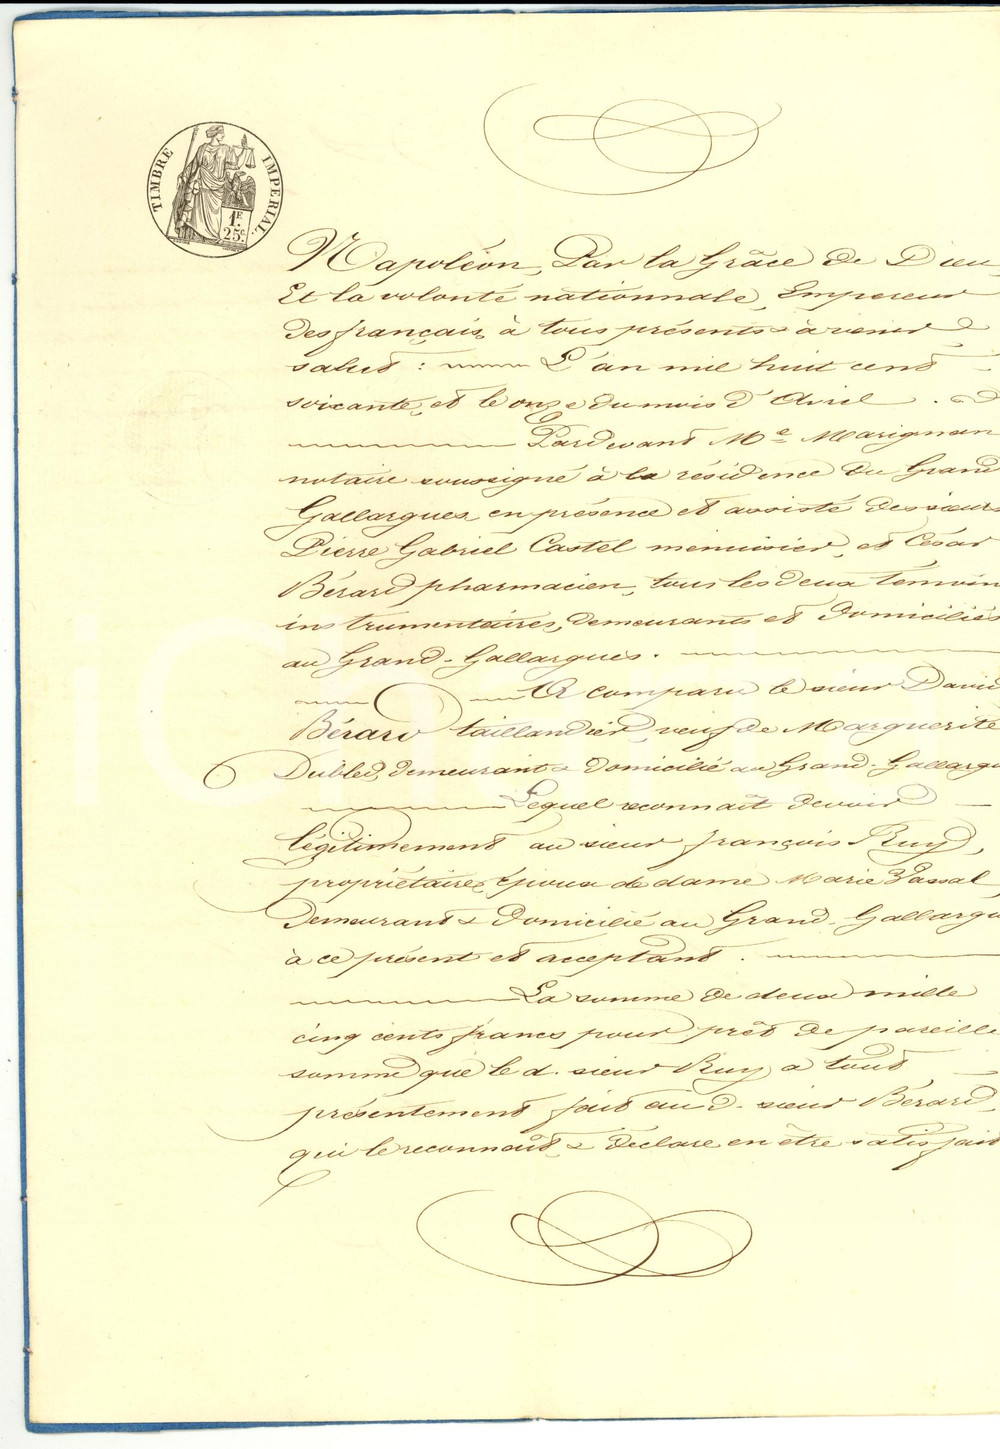 TIMBRE IMPERIAL.
1F.
25C.
Napoléon, Par la Grâce de Dieu
Et la volonté nationnale, Empereur
des français, à tous présents & à venir
salut : L'an mil huit cent
soixante, et le onze du mois d'Avril .
Pardevant Me Marignan
notaire soussigné à la résidence du Grand
Gallargues, en présence et assisté des sieurs
Pierre Gabriel Castel menuisier, et César
Bérard pharmacien, tous les deux témoins
instrumentaires, demeurants et domiciliés
au Grand-Gallargues.
A comparu le sieur David
Bérard taillandier, veuf de Marguerite
Dubled, demeurant & domicilié au Grand-Gallargu
Lequel reconnaît devoir
légitimement au sieur françois Ruy,
propriétaire, époux de dame Marie Vassal,
demeurant & domicilié au Grand-Gallargu
à ce présent et acceptant .
La somme de deux mille
cinq cents francs pour prêt de pareille
somme que le d. sieur Ruy a tout
présentement fait au d. sieur Bérard,
qui le reconnaît & déclare en être satisfait